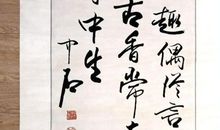 趣偶從言
古香常
中生
中石